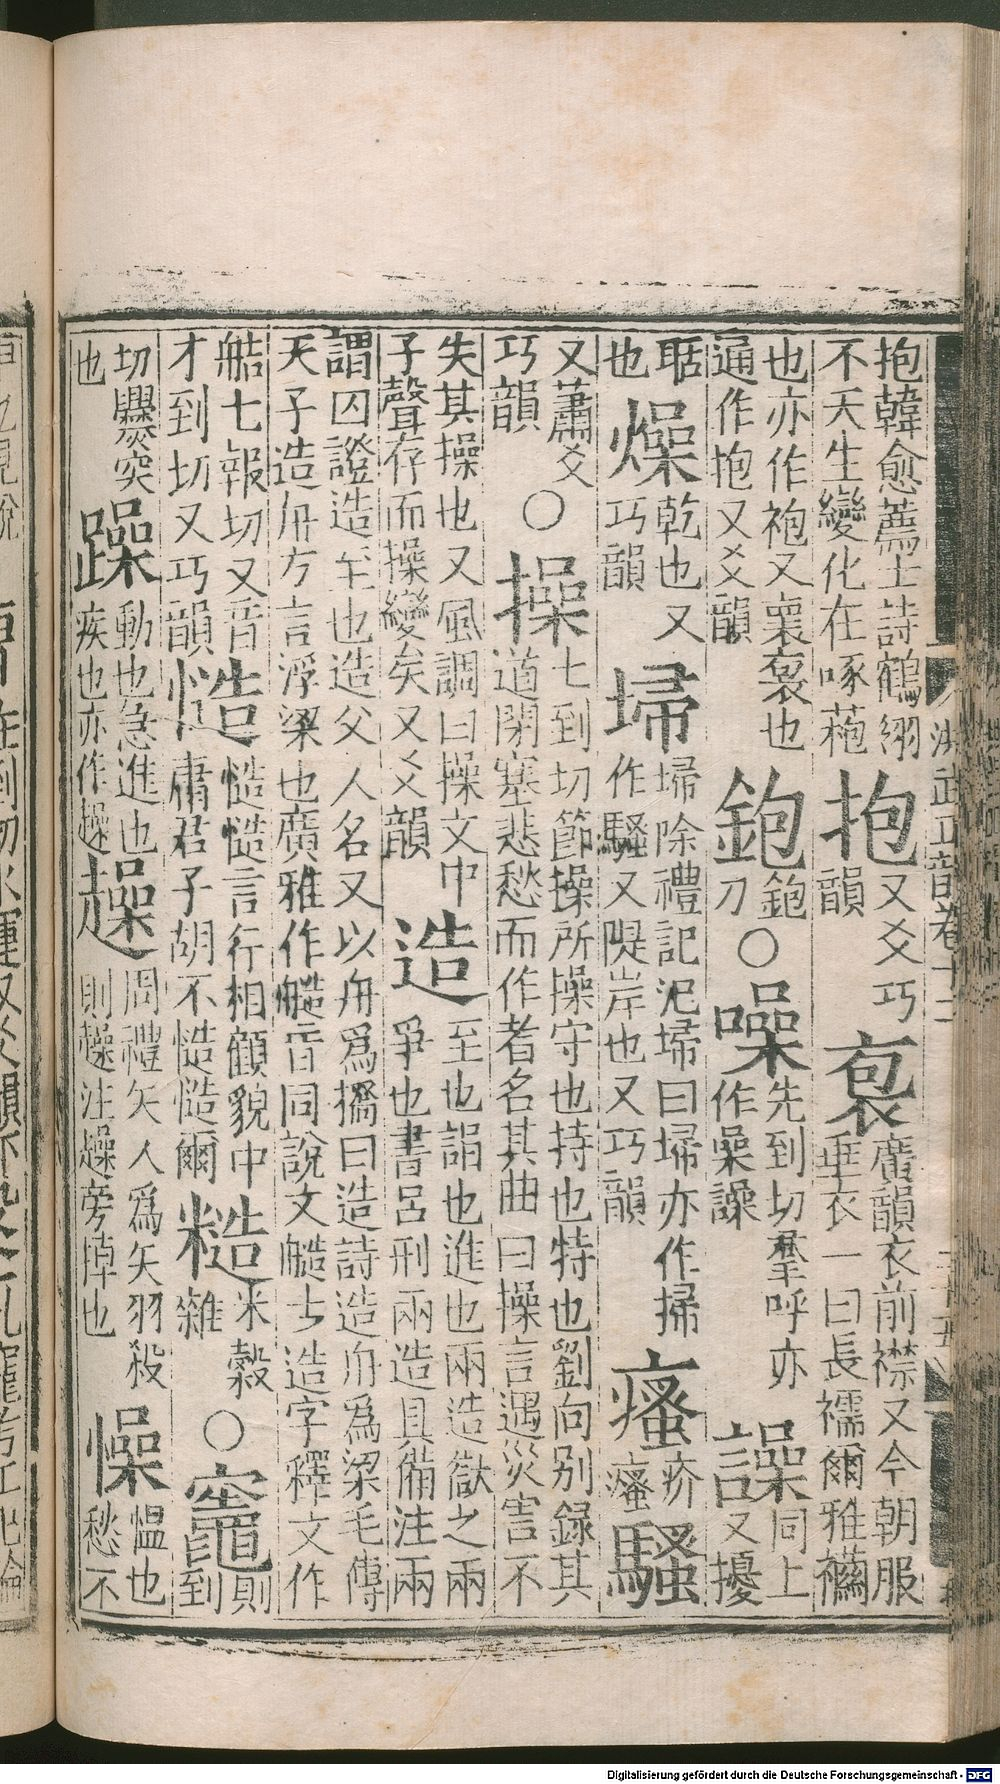 抱韓愈薦士詩鶴翎
不天生變化在啄菢
抱又爻巧
韻
袌廣韻衣前襟又今朝服
垂衣一曰長襦爾雅襺
也亦作袍又裹袌也
通作抱又爻韻
鉋鉋
刀
○噪先到切羣呼亦
作喿譟
譟同上
又擾
聒
也
燥乾也又
巧韻
埽埽除禮記氾埽曰埽亦作掃
作騷又隄岸也又巧韻
瘙疥
瘙
騷
又蕭爻
巧韻
○操七到切節操所操守也持也特也劉向别錄其
道閉塞悲愁而作者名其曲曰操言遇災害不
失其操也又風調曰操文中
子聲存而操變矣又爻韻
造至也詣也進也兩造獄之兩
爭也書呂刑兩造具備注兩
謂囚證造至也造父人名又以舟爲橋曰造詩造舟爲梁毛傳
天子造舟方言浮梁也廣雅作艁音同說文艁古造字釋文作
艁七報切又音
才到切又巧韻
慥慥慥言行相顧貌中
庸君子胡不慥慥爾
糙米穀
雜
○竈則
到
切爨突
也
躁動也急進也
疾也亦作趮
趮周禮矢人爲矢羽殺
則趮注趮旁掉也
懆愠也
愁不
洪武正韻卷十二
Digitalisierung gefördert durch die Deutsche Forschungsgemeinschaft - DFG